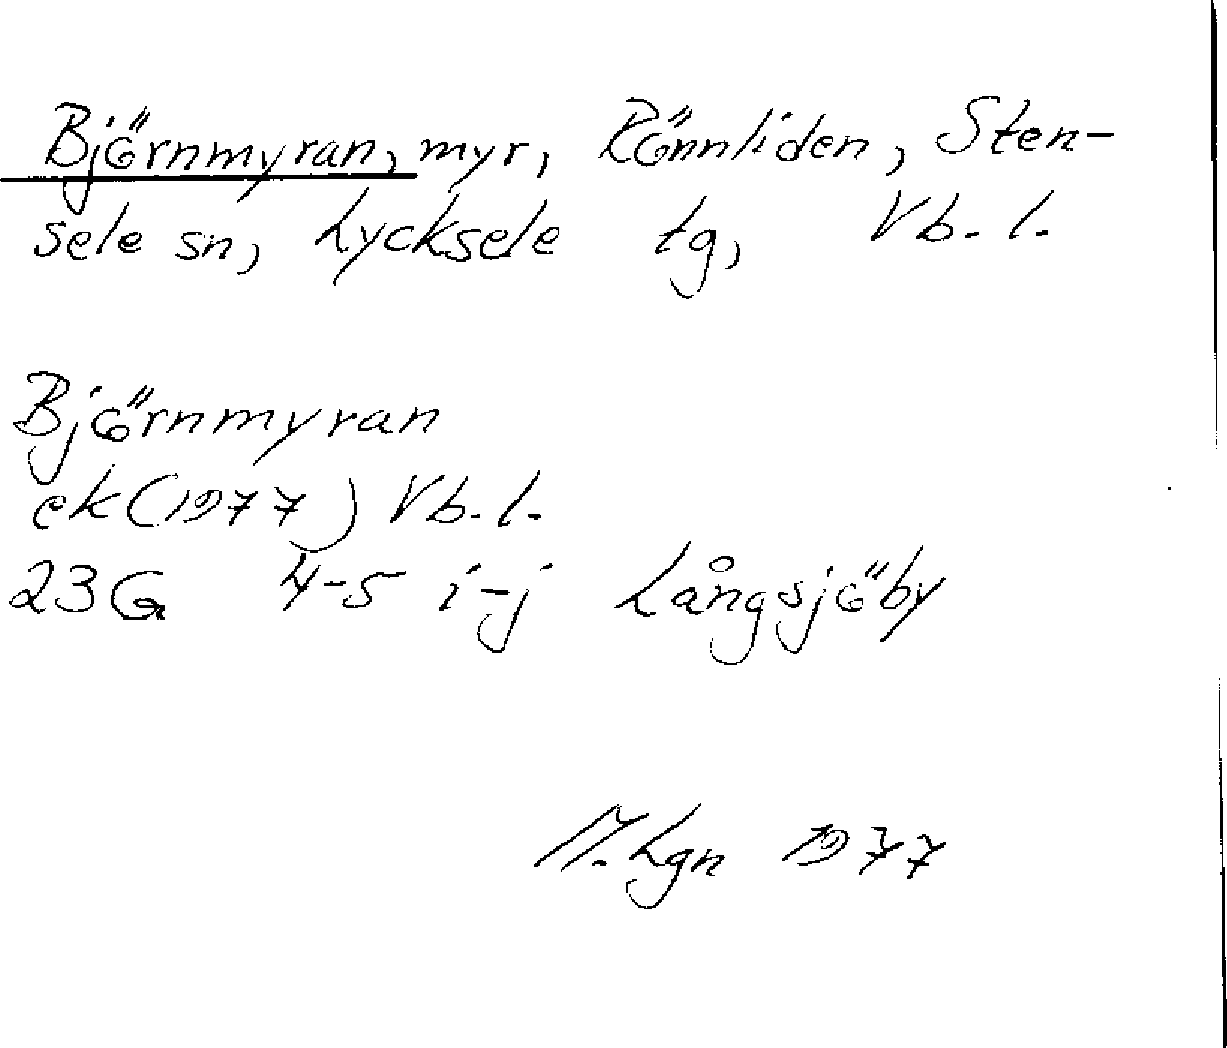 Björnmyran, myr, Rönnliden, Sten-
sele sn, Lycksele tg, Vb. l.
Björnmyran
ek (1977) Vb. l.
23 G 4-5 i-j Långsjöby
M. Lgn 1977